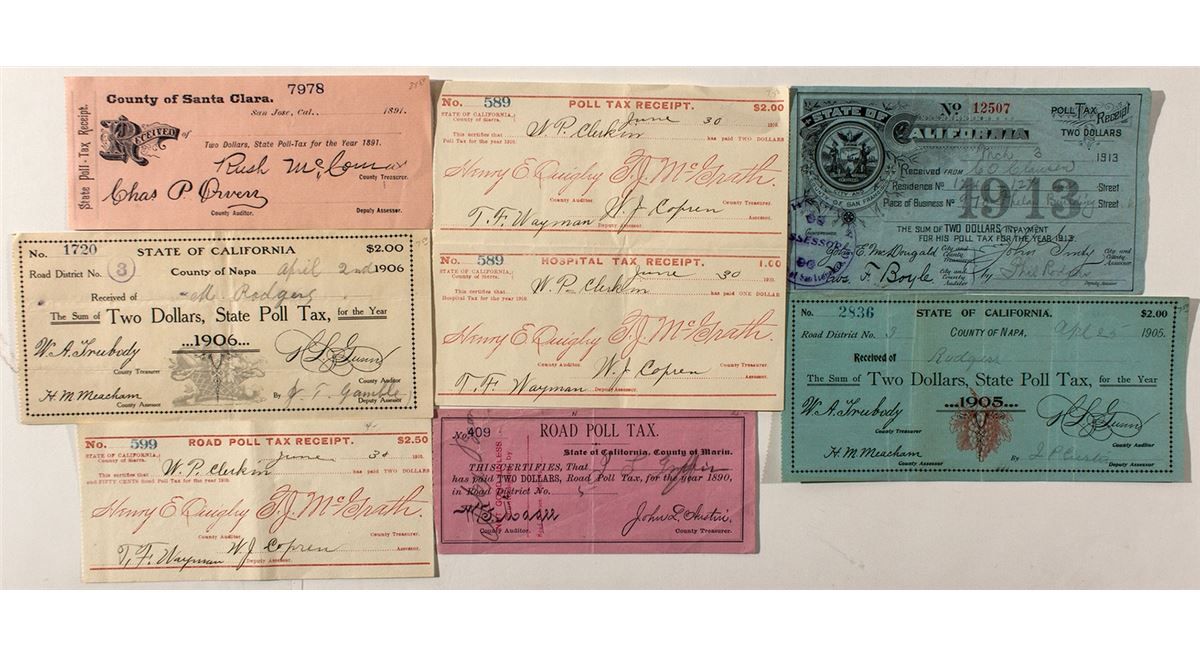 State Poll-Tax Receipt.
County of Santa Clara.
7978
San Jose, Cal., 1891.
Received of
Two Dollars, State Poll-Tax for the Year 1891.
Rush McComas
County Treasurer.
Chas P. Owen
County Auditor. Deputy Assessor.
No. 1720 STATE OF CALIFORNIA $2.00
Road District No. 3 County of Napa April 2nd 1906
Received of M. Rodgers
The Sum of Two Dollars, State Poll Tax, for the Year
...1906...
W. A. Treubody
County Treasurer
County Auditor
H. M. Meacham By J. T. Gamble
County Assessor Deputy Assessor
No. 599 ROAD POLL TAX RECEIPT. $2.50
STATE OF CALIFORNIA,
County of Sierra. June 30 1910.
This certifies that W. P. Clerkin has paid TWO DOLLARS
and FIFTY CENTS Road Poll Tax for the year 1910.
Henry E. Quigley T. J. McGrath.
County Auditor. County Treasurer.
T. F. Wayman W. J. Copren Assessor.
Deputy Assessor.
No. 589 POLL TAX RECEIPT. $2.00
STATE OF CALIFORNIA,
County of Sierra. June 30 1910.
This certifies that W. P. Clerkin has paid TWO DOLLARS
Poll Tax for the year 1910.
Henry E. Quigley T. J. McGrath.
County Auditor. County Treasurer.
T. F. Wayman W. J. Copren
Deputy Assessor. Assessor.
No. 589 HOSPITAL TAX RECEIPT. 1.00
STATE OF CALIFORNIA,
County of Sierra. June 30 1910.
This certifies that W. P. Clerkin has paid ONE DOLLAR
Hospital Tax for the year 1910.
Henry E. Quigley T. J. McGrath.
County Auditor. County Treasurer.
T. F. Wayman W. J. Copren
Deputy Assessor. Assessor.
No. 409 ROAD POLL TAX.
State of California, County of Marin.
THIS CERTIFIES, That
has paid TWO DOLLARS, Road Poll Tax, for the year 1890,
in Road District No. 5
John L. Austin.
County Auditor. County Treasurer.
No 12507 POLL TAX Receipt
STATE OF CALIFORNIA TWO DOLLARS
CITY AND COUNTY OF SAN FRANCISCO
Mch 3 1913
RECEIVED FROM
RESIDENCE No Street
1913
PLACE OF BUSINESS No Phelan Building Street
THE SUM OF TWO DOLLARS IN PAYMENT
FOR HIS POLL TAX FOR THE YEAR 1913.
John E. McDougald City and County Treasurer. John Ginty City and County Assessor.
Thos. F. Boyle City and County Auditor by
Deputy Assessor
No. 2836 STATE OF CALIFORNIA. $2.00
Road District No. 3 COUNTY OF NAPA, Apl 25 1905.
Received of Rodgers
The Sum of Two Dollars, State Poll Tax, for the Year
...1905...
W. A. Treubody
County Treasurer
County Auditor
H. M. Meacham By
County Assessor Deputy Assessor